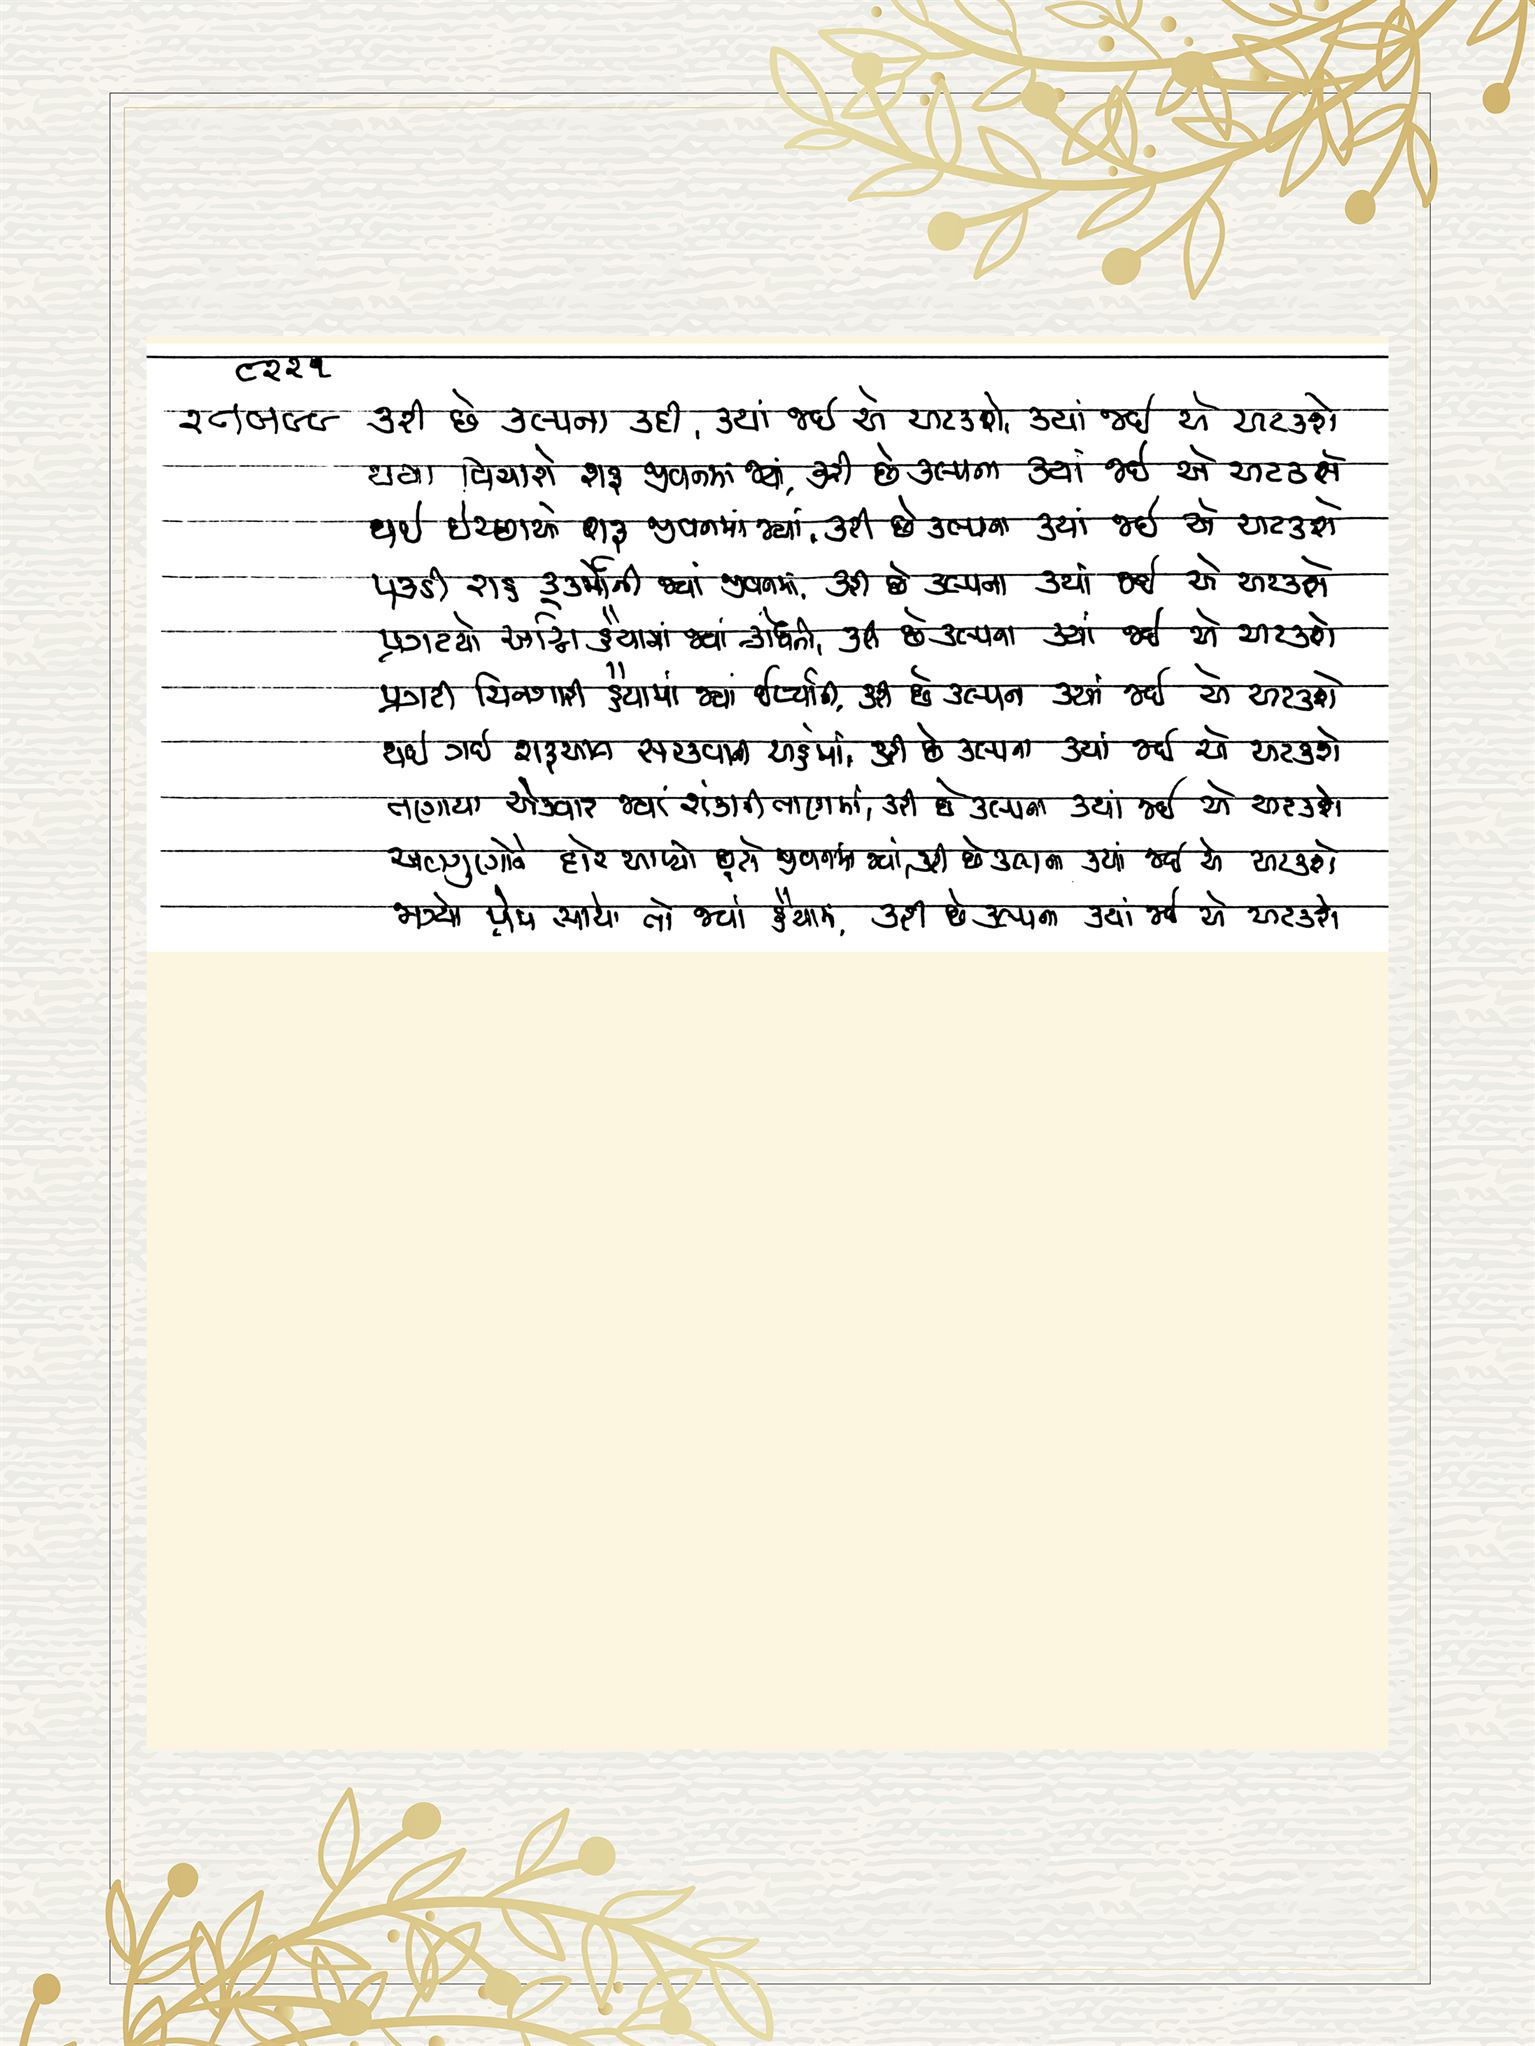 ૮૨૨૧
કરી છે કલ્પના કદી, ક્યાં જઈ એ અટકશે, ક્યાં જઈ એ અટકશે
થયા વિચારો શરૂ જીવનમાં જ્યાં, કરી છે કલ્પના ક્યાં જઈ એ અટકશે
થઈ ઇચ્છાઓ શરૂ જીવનમાં જ્યાં, કરી છે કલ્પના ક્યાં જઈ એ અટકશે
પકડી રાહ કુકર્મોની જ્યાં જીવનમાં, કરી છે કલ્પના ક્યાં જઈ એ અટકશે
પ્રગટયો અગ્નિ હૈયામાં જ્યાં ક્રોધનો, કરી છે કલ્પના ક્યાં જઈ એ અટકશે
પ્રગટી ચિનગારી હૈયામાં જ્યાં ઈર્ષ્યાની, કરી છે કલ્પના ક્યાં જઈ એ અટકશે
થઈ ગઈ શરૂઆત સરકવાની અહંમાં, કરી છે કલ્પના ક્યાં જઈ એ અટકશે
તણાયા એકવાર જ્યાં શંકાની તાણમાં, કરી છે કલ્પના ક્યાં જઈ એ અટકશે
અવગુણોને દોર આપ્યો છૂટો જીવનમાં જ્યાં, કરી છે કલ્પના ક્યાં જઈ એ અટકશે
મળ્યો પ્રેમ સાચો તો જ્યાં હૈયામાં, કરી છે કલ્પના ક્યાં જઈ એ અટકશે